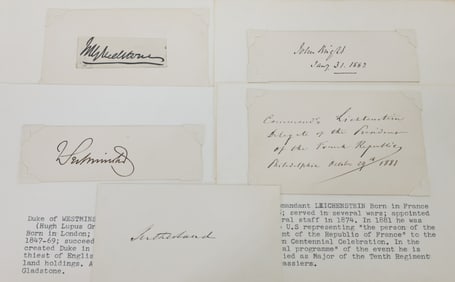 WEGladstone
John Bright
Jany 31. 1862
Westminster
Commandt Lichtenstein
Delegate of the President
of the French Republic
Philadelphia October 29th 1881
Sutherland
Duke of WESTMINS
(Hugh Lupus Gr
Born in London;
1847-69; succeed
created Duke in
thiest of Englis
land holdings. A
Gladstone.
mandant LEICHENSTEIN Born in France
; served in several wars; appointed
ral staff in 1874. In 1881 he was
U.S representing "the person of the
nt of the Republic of France" to the
n Centennial Celebration. In the
al programme" of the event he is
ied as Major of the Tenth Regiment
assiers.